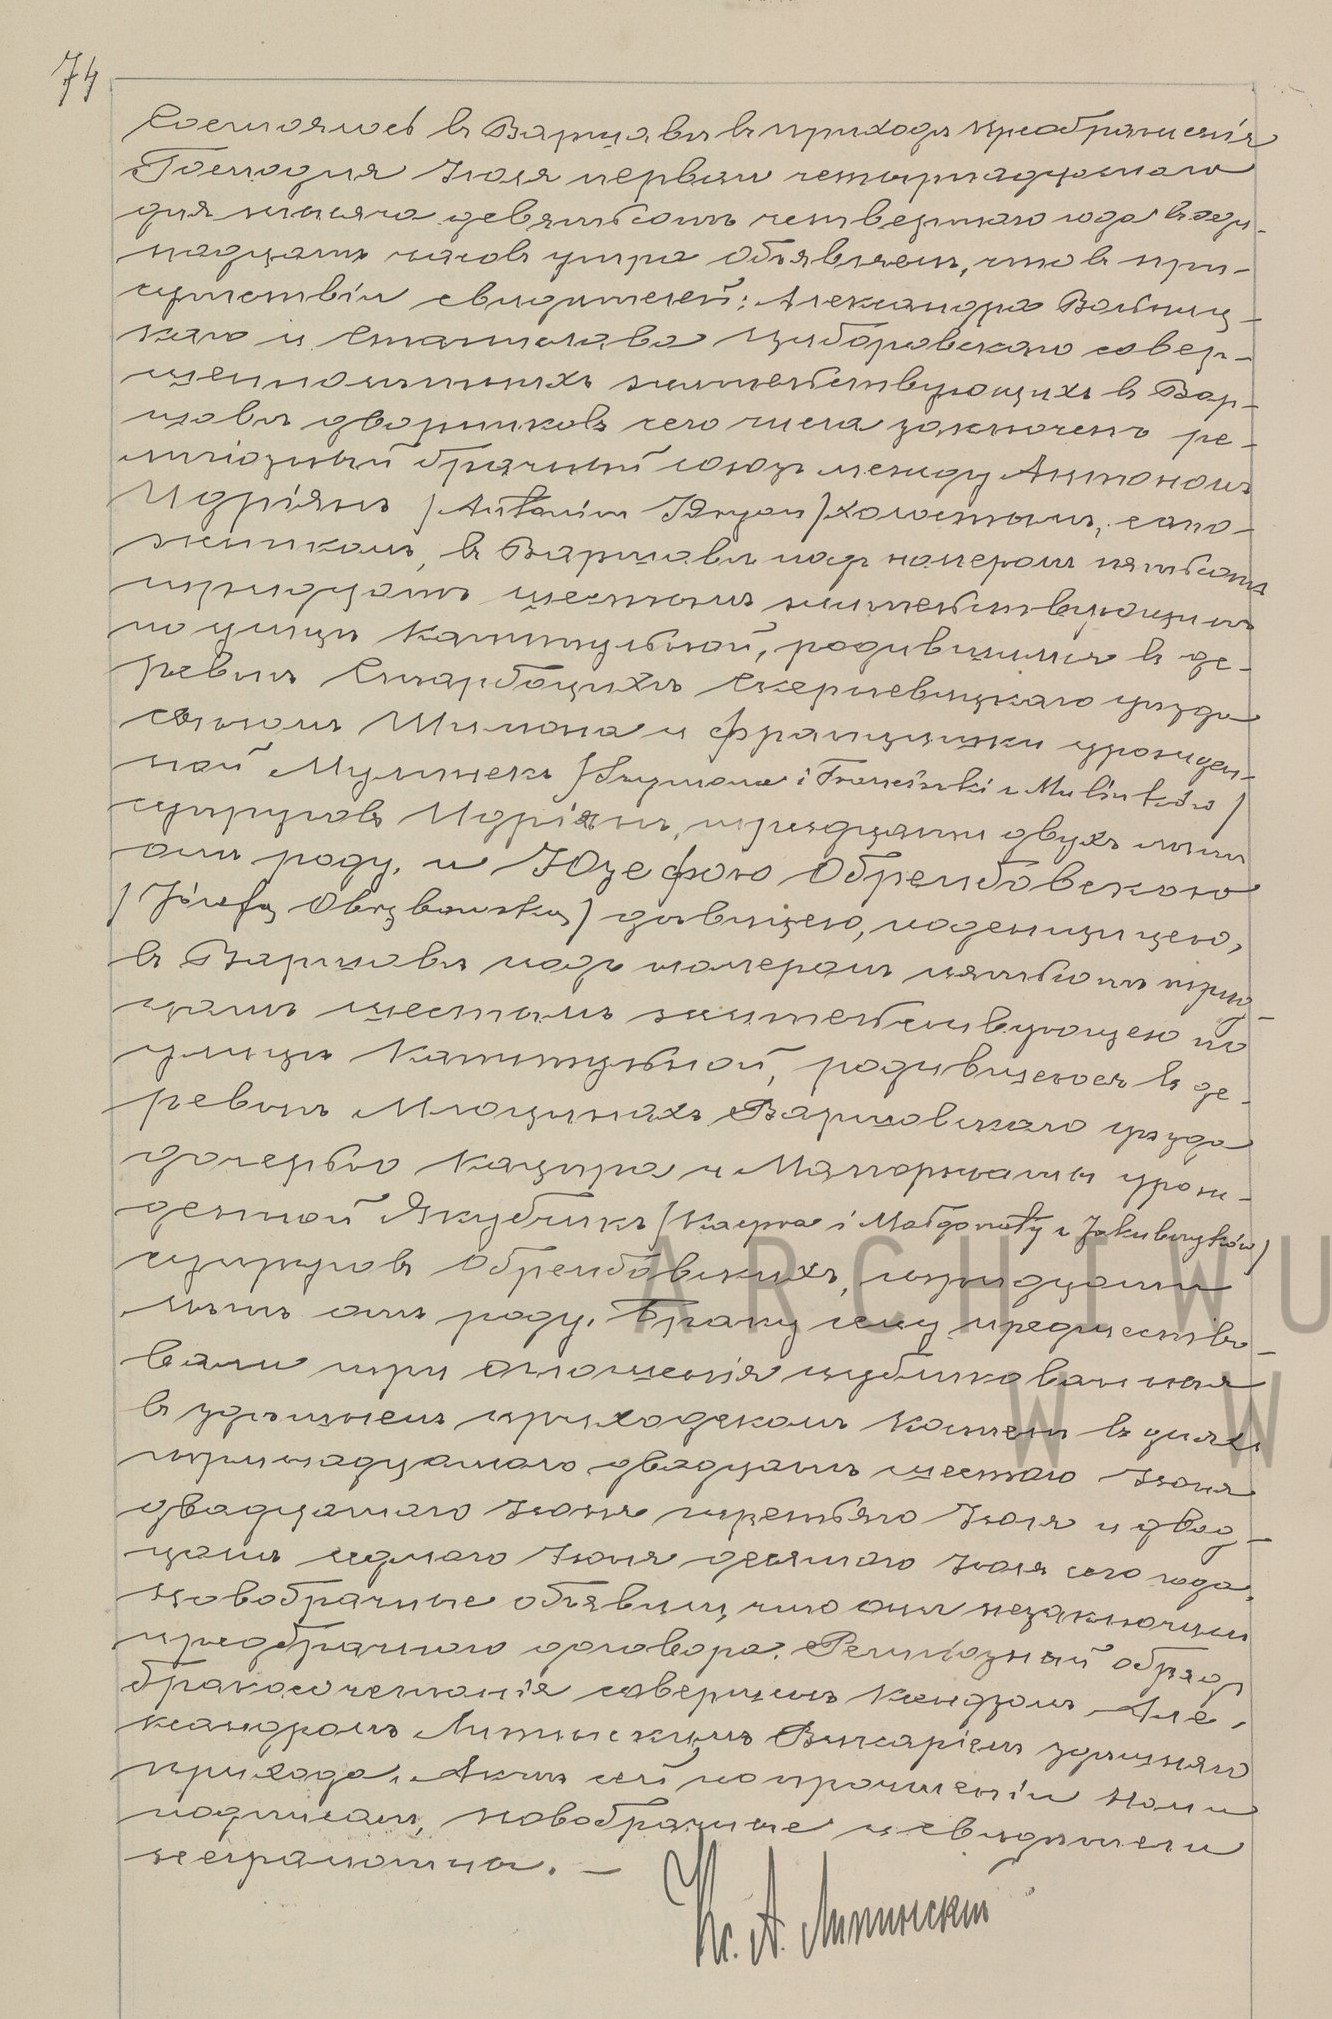 74
Состоялось въ Варшавѣ въ приходѣ Преображенія
Господня Іюля первого четырнадцатого
дня тысяча девятьсотъ четвертаго года въ оди-
надцать часовъ утра. Объявляемъ, что въ при-
сутствіи свидѣтелей: Александра Вольниц-
каго и Станислава Циборовскаго совер-
шеннолѣтнихъ жительствующихъ въ Вар-
шавѣ дворниковъ сего числа заключенъ ре-
лигіозный брачный союзъ между Антономъ
Идріянъ /Antonim Idryan/ холостымъ, сапо-
жникомъ, въ Варшавѣ подъ номеромъ пятьсотъ
тридцать шестымъ жительствующимъ
по улицѣ Капитульной, родившимся въ де-
ревнѣ Скерневицкаго уѣзда
сыномъ Шимона и Францишки урожден-
ной Мулинекъ /Szymona i Franciszki z Mulinków/
супруговъ Идріянъ, тридцати двухъ лѣтъ
отъ роду, и Юзефою Обрембовскою
/Józefą Obrębowską/ дѣвицею, поденщицею,
въ Варшавѣ подъ номеромъ пятьсотъ трид-
цать шестымъ жительствующею по
улицѣ Капитульной, родившеюся въ де-
ревнѣ Млоцинахъ Варшавскаго уѣзда
дочерью Кацпра и Малгоржаты урож-
денной Якубчикъ /Kacpra i Małgorzaty z Jakubczyków/
супруговъ Обрембовскихъ, тридцати
лѣтъ отъ роду. Браку сему предшество-
вали три оглашенія публикованныя
въ здѣшнемъ приходскомъ костелѣ въ дняхъ
тринадцатаго двадцать шестаго Іюня
двадцатаго Іюня третьяго Іюля и двад-
цать седмаго Іюня десятаго Іюля сего года.
Новобрачные объявили, что они незаключили
предбрачного договора. Религіозный обряд
бракосочетанія совершенъ Ксендзомъ Але-
ксандромъ Липинскимъ Викаріемъ здѣшняго
прихода. Актъ сей по прочтеніи нами
подписанъ, новобрачные и свидѣтели
неграмотны. —
Кс. А. Липинскій
ARCHIWU
W W